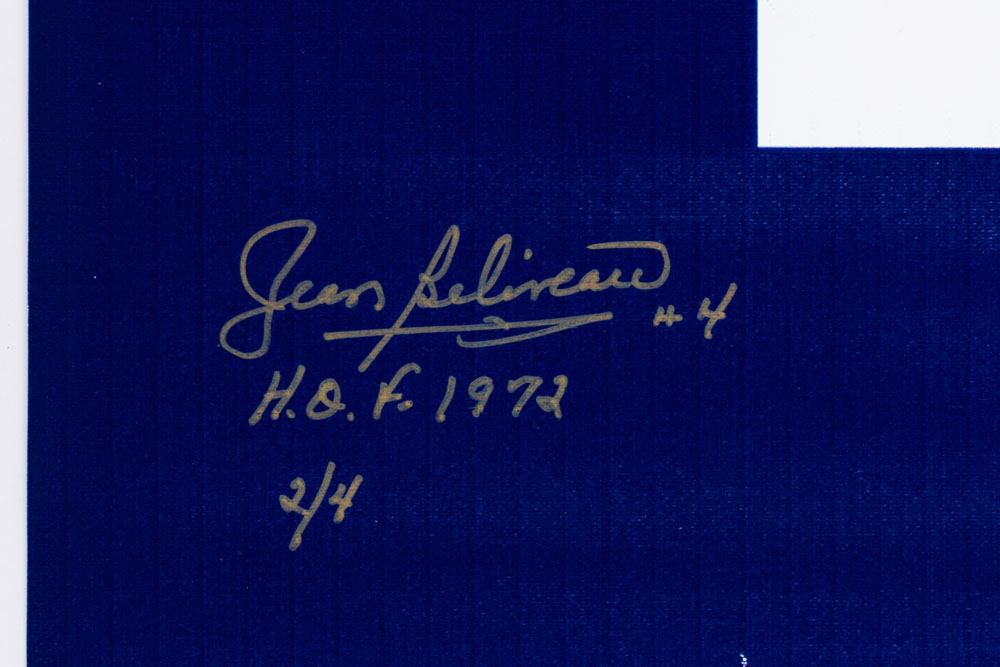 Jean Beliveau # 4
H.O.F. 1972
2/4